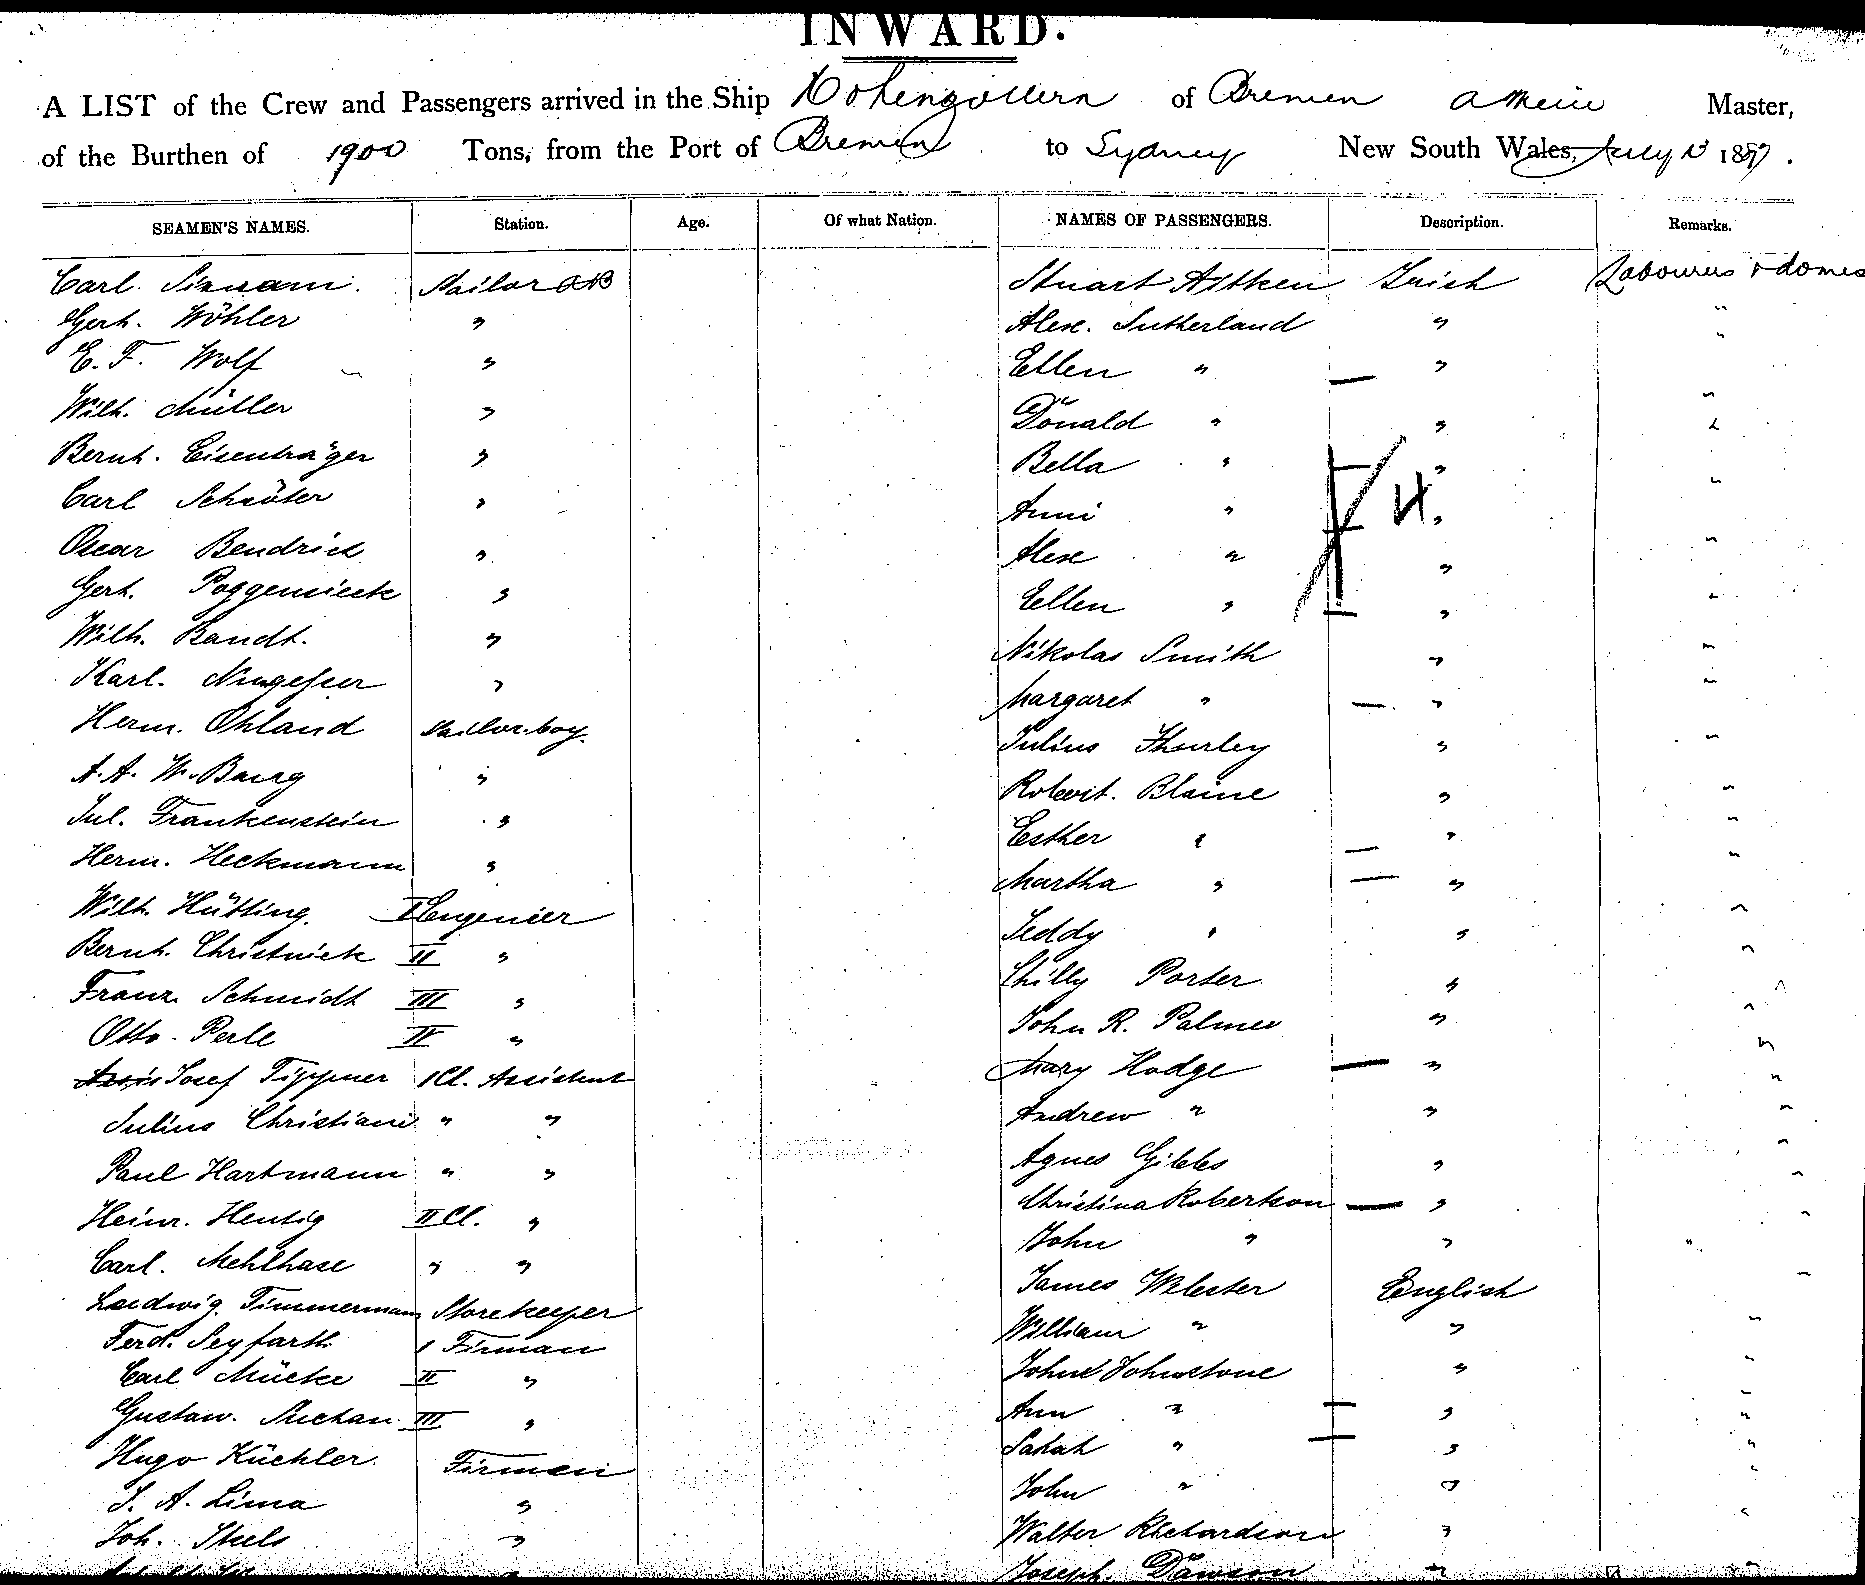 INWARD.
A LIST of the Crew and Passengers arrived in the Ship Hohenzollern of Bremen Master,
of the Burthen of 1900 Tons, from the Port of Bremen to Sydney New South Wales, July 13 1887.
SEAMEN'S NAMES. Station. Age. Of what Nation. NAMES OF PASSENGERS. Description. Remarks.
Carl. Sailor AB Stuart Aitken Irish Labourers & domes
Gerh. Wöhler " Alex. Sutherland " "
E. F. Wolf " Ellen " " "
Wilh. Müller " Donald " " "
Bernh. Eisenträger " Bella " " "
Carl Schröter " Anni " 4. "
Oscar Bendrick " Alex " " "
Gerh. Poggensieck " Ellen " " "
Wilh. Bandt. " Nikolas Smith " "
Karl. " Margaret " " "
Herm. Ohland Sailor boy. Julius Thurley " "
A. A. W. " Blaine " "
Jul. Frankenstein " Esther " " "
Herm. Heckmann " Martha " " "
Wilh. Hütting. I Engenier Teddy " " "
Bernh. Christnick II " Porter " "
Franz Schmidt III " John R. Palmer " "
Otto Perle IV " Mary Hodge " "
Josef Tippner I Cl. Assistent Andrew " " "
Julius Christiani " " Agnes Gibbs " "
Paul Hartmann " " Christina Robertson " "
Heinr. Hentig II Cl. " John " " "
Carl. Mehlhase " " James Webster English "
Ludwig Timmermann Storekeeper William " " "
Ferd. Seyfarth I Firman John Johnstone " "
Carl Mücke II " Ann " " "
Gustav. III " Sahah " " "
Hugo Küchler Firmen John " " "
J. A. Lima " Walter Richardson " "
Joh. " Joseph. Dawson " "